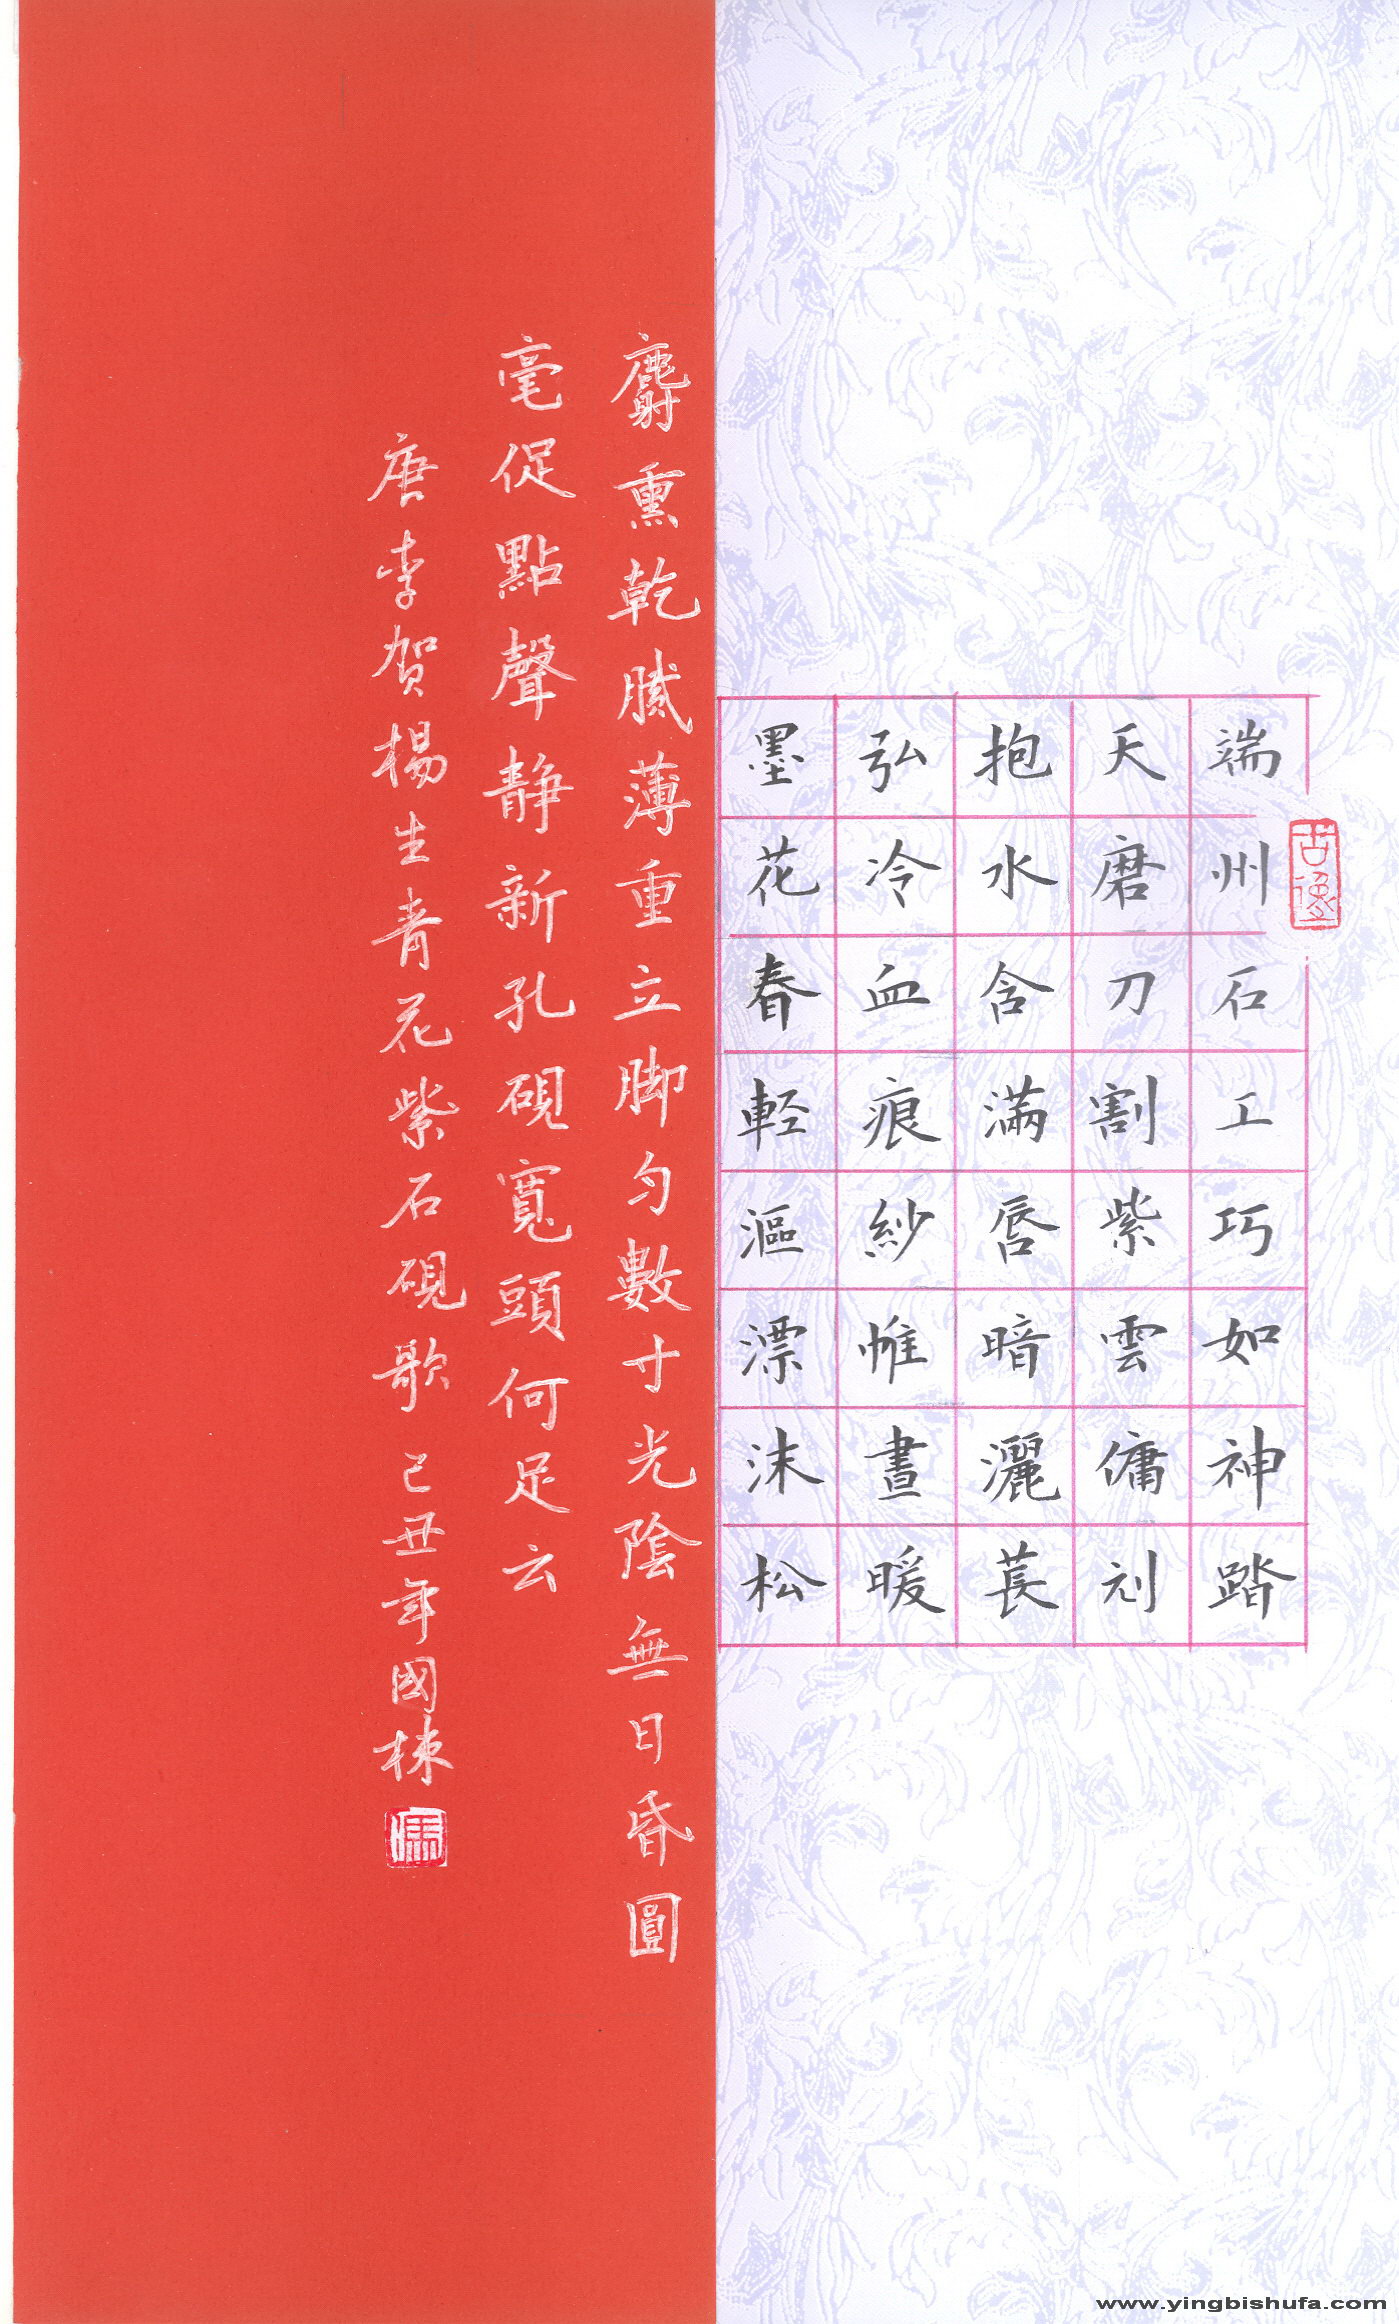 端州石工巧如神踏
天磨刀割紫雲傭刓
抱水含滿唇暗灑萇
弘冷血痕紗帷晝暖
墨花春軽漚漂沫松
麝熏乾膩薄重立脚匀數寸光陰無日昏圓
毫促點聲静新孔硯寬頭何足云
唐李賀楊生青花紫石硯歌己丑年國棟
www.yingbishufa.com